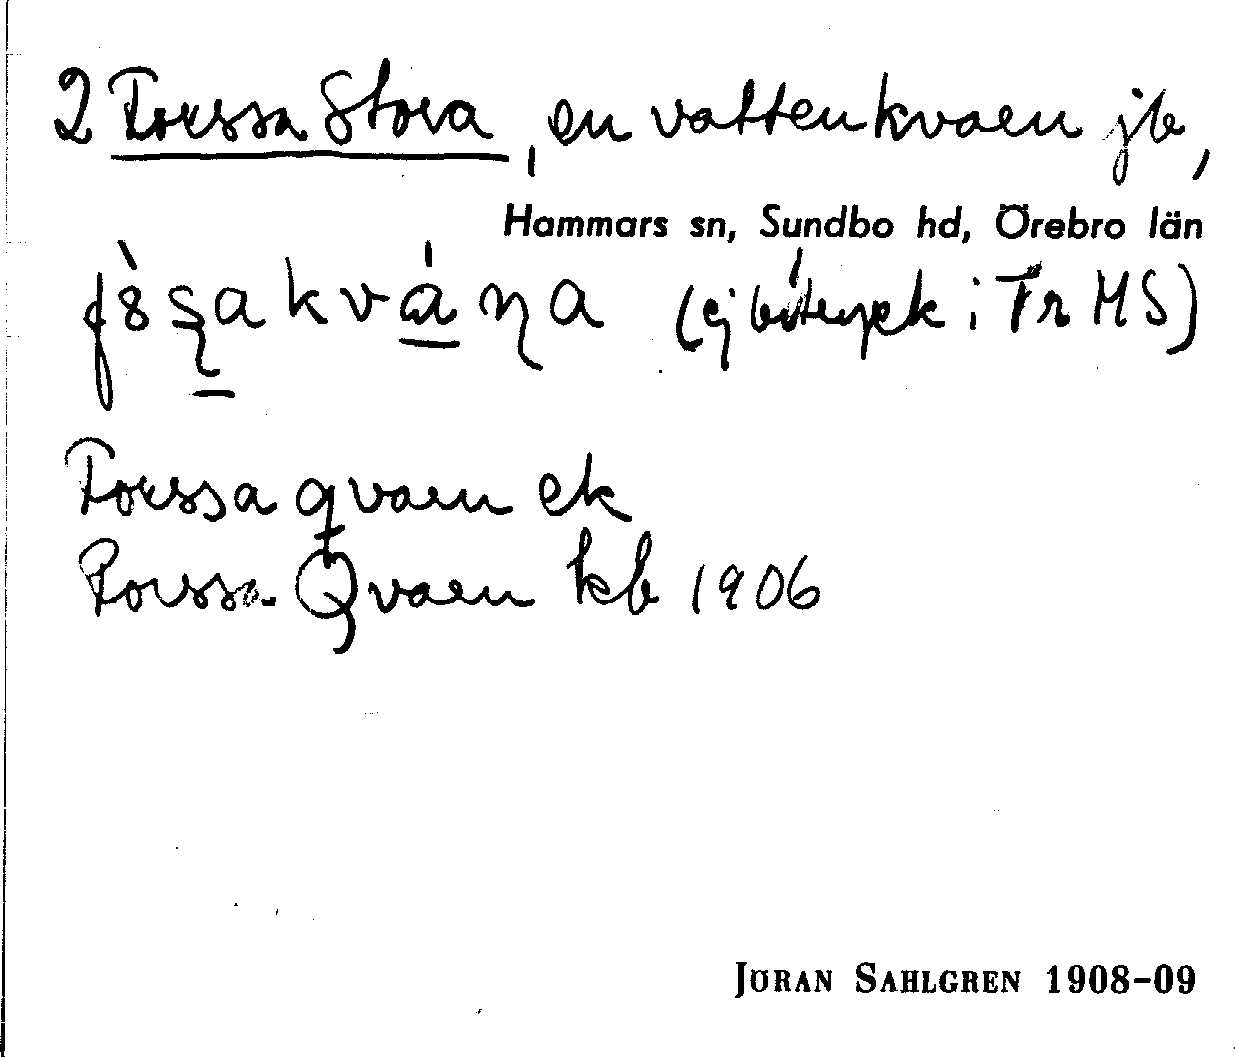 2 Forssa Stora, en vattenkvaen jb,
Hammars sn, Sundbo hd, Örebro län
(ej i Fr HS)
Forssa qvaen ek
Forssa Qvaen kb 1906
JÖRAN SAHLGREN 1908-09